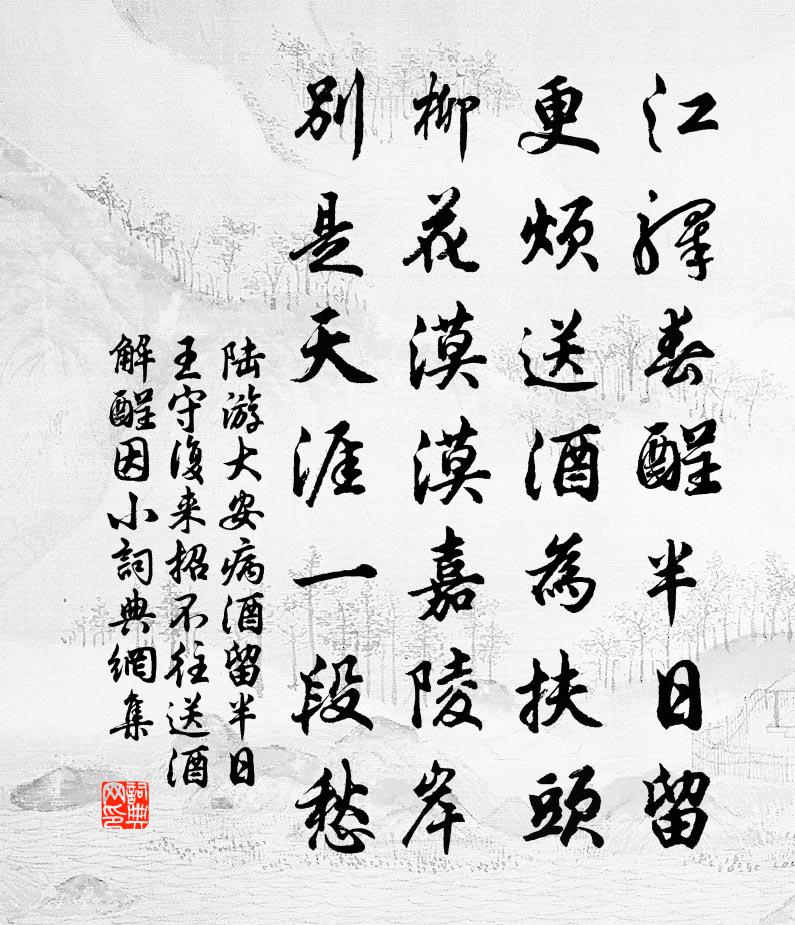 江驛春酲半日留
更煩送酒為扶頭
柳花漠漠嘉陵岸
別是天涯一段愁
陆游大安病酒留半日
王守復来招不往送酒
解酲因小詞典網集
詞典网印